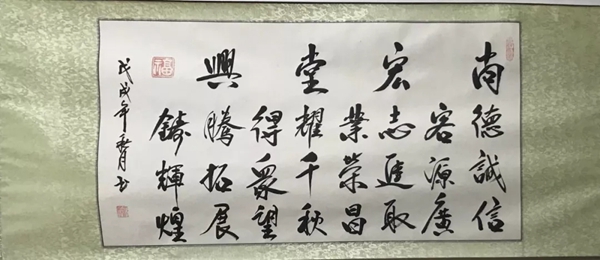 尚德誠信
客源廣
宏志進取
業榮昌
堂耀千秋
得眾望
興騰拓展
鑄輝煌
戊戌年秋月书
福